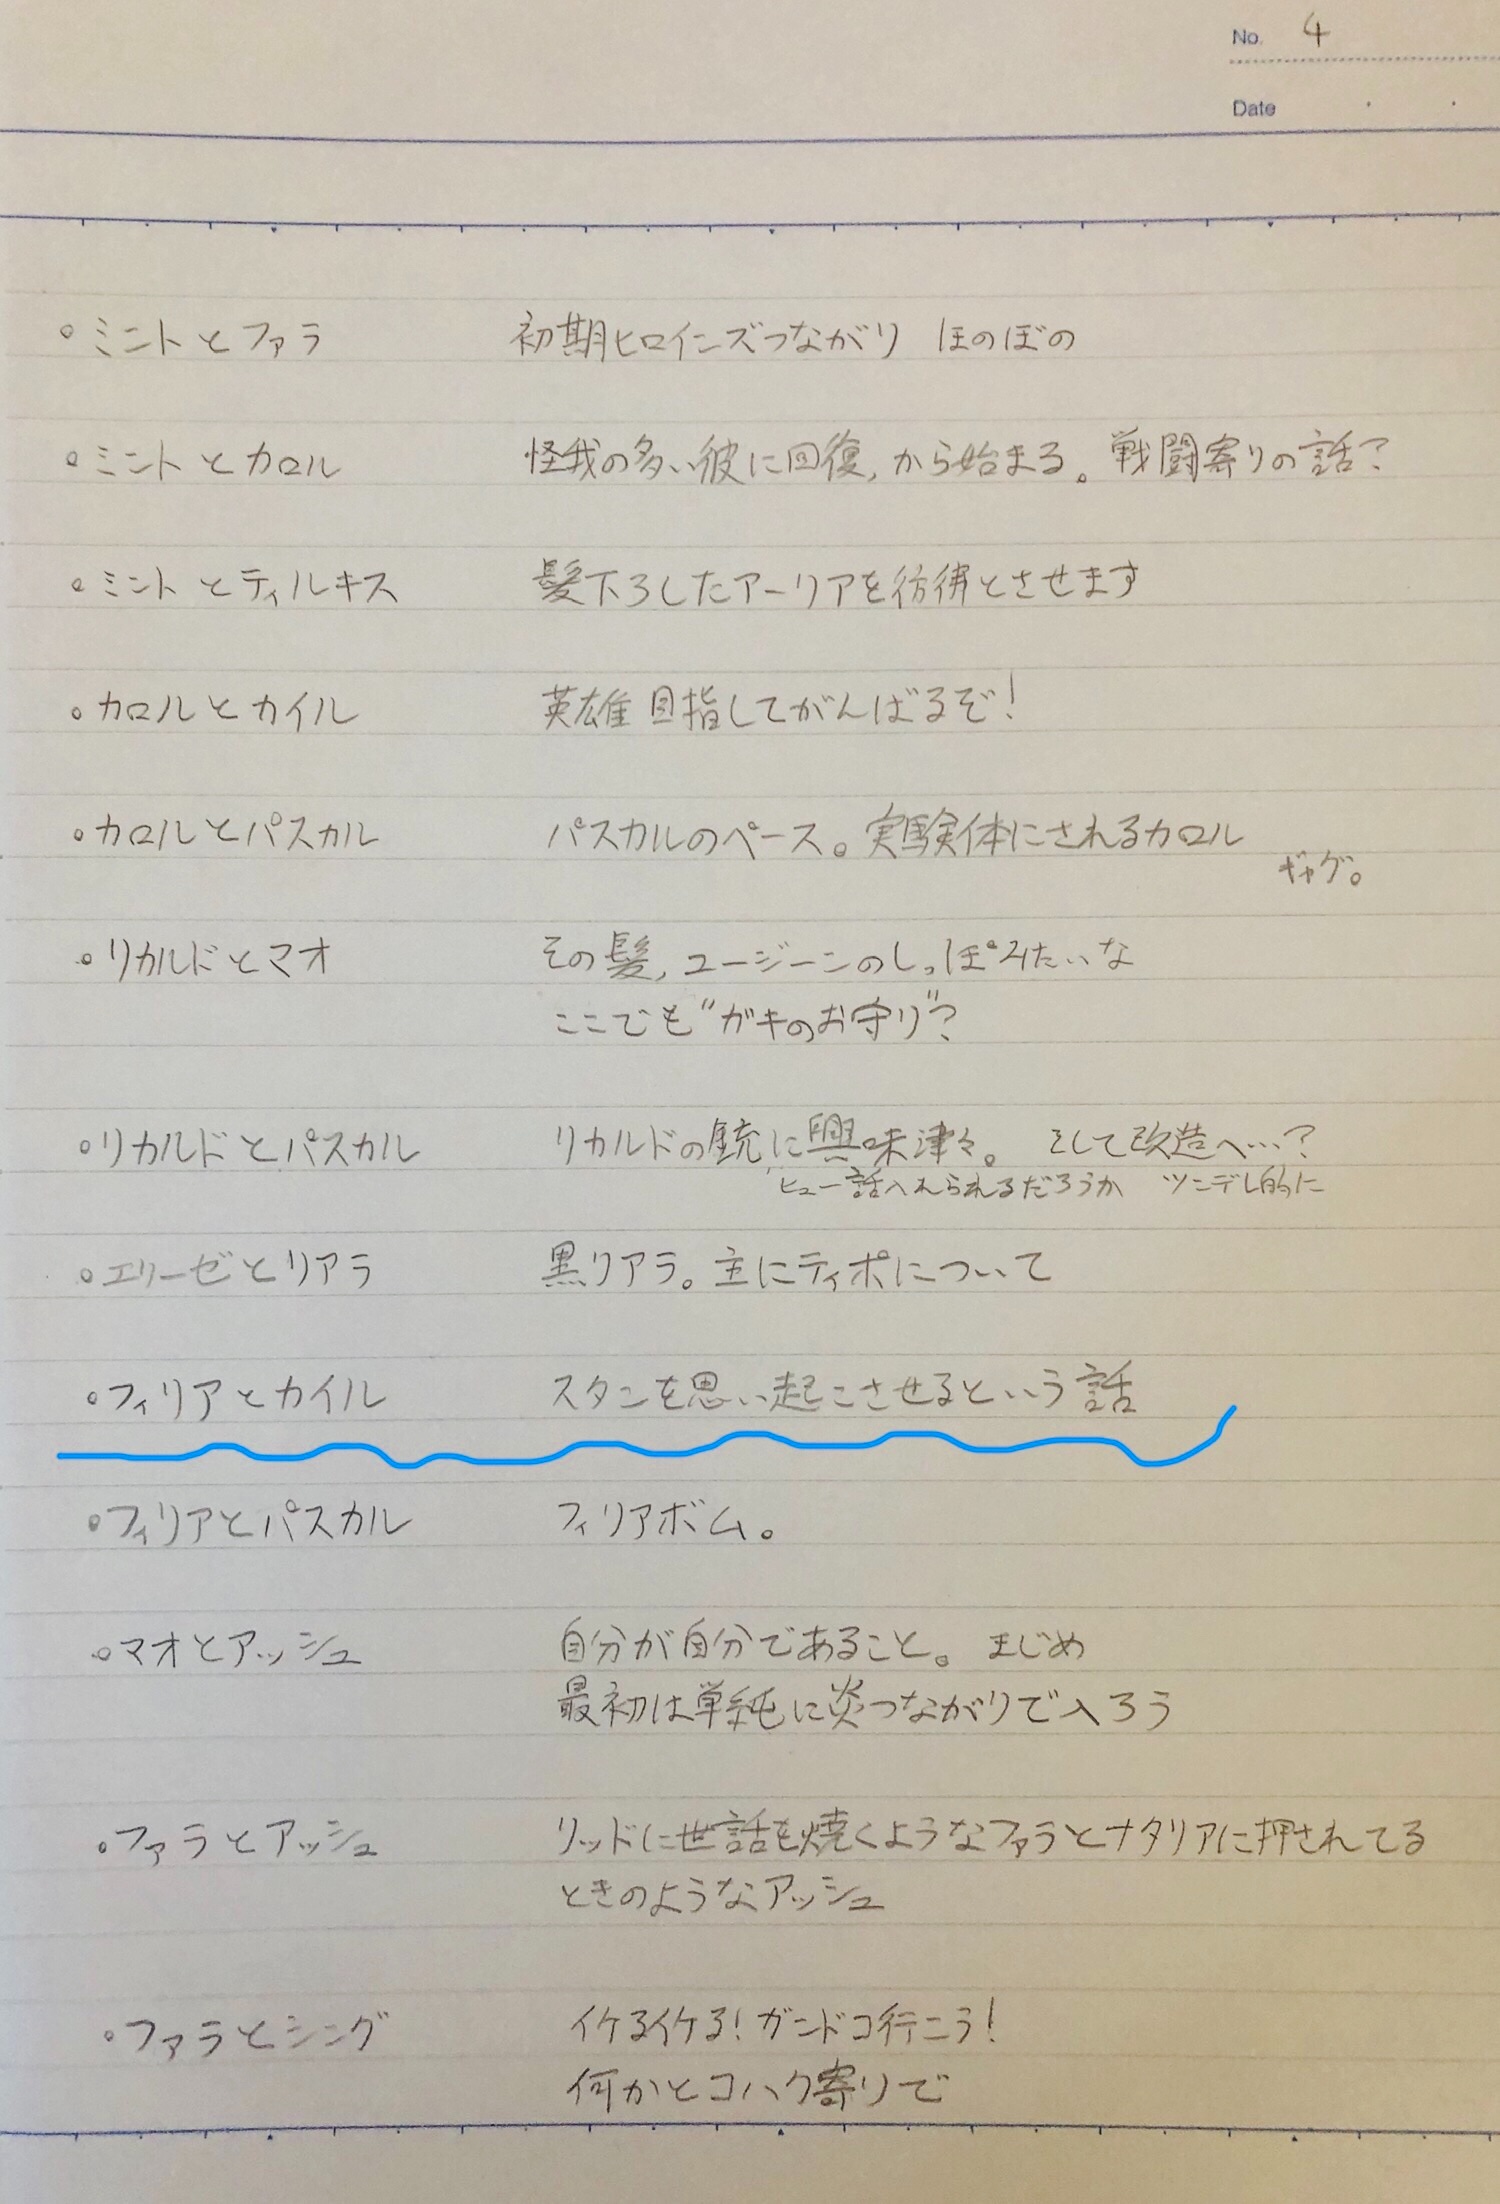 No. 4
Date
。ミントとファラ 初期ヒロインズつながり ほのぼの
。ミントとカロル 怪我の多い彼に回復,から始まる。戦闘寄りの話?
。ミントとティルキス 髪下ろしたアーリアを彷彿とさせます
。カロルとカイル 英雄目指してがんばるぞ!
。カロルとパスカル パスカルのペース。実験体にされるカロル
ギャグ。
。リカルドとマオ その髪,ユージーンのしっぽみたいな
ここでも"ガキのお守り"?
。リカルドとパスカル リカルドの銃に興味津々。 そして改造へ…?
ヒュー話入れられるだろうか ツンデレ的に
。エリーゼとリアラ 黒リアラ。主にティポについて
。フィリアとカイル スタンを思い起こさせるという話
。フィリアとパスカル フィリアボム。
。マオとアッシュ 自分が自分であること。 まじめ
最初は単純に炎つながりで入ろう
。ファラとアッシュ リッドに世話を焼くようなファラとナタリアに押されてる
ときのようなアッシュ
。ファラとシング イケるイケる!ガンドコ行こう!
何かとコハク寄りで